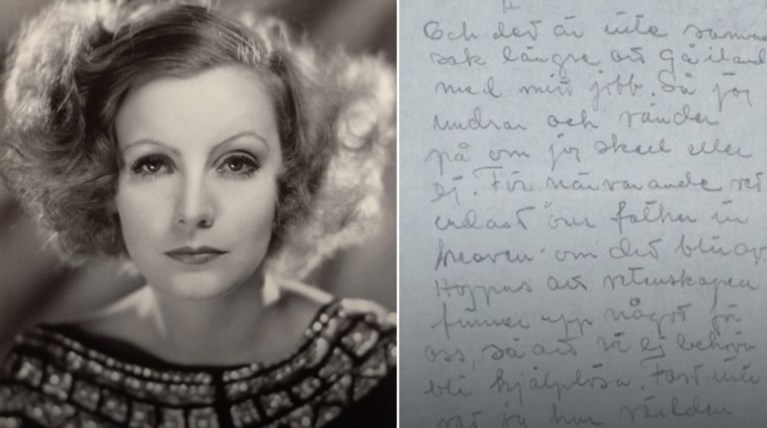 Och det är inte samma
sak längre att gå iland
med mitt jobb. Så jag
undrar och vänder
på om jag skall eller
ej. För närvarande vet
endast "our father in
heaven" om det blir av
Hoppas att vetenskapen
finner upp något för
oss, så att vi ej behöva
bli hjälplösa. Fast inte
vet jag hur världen